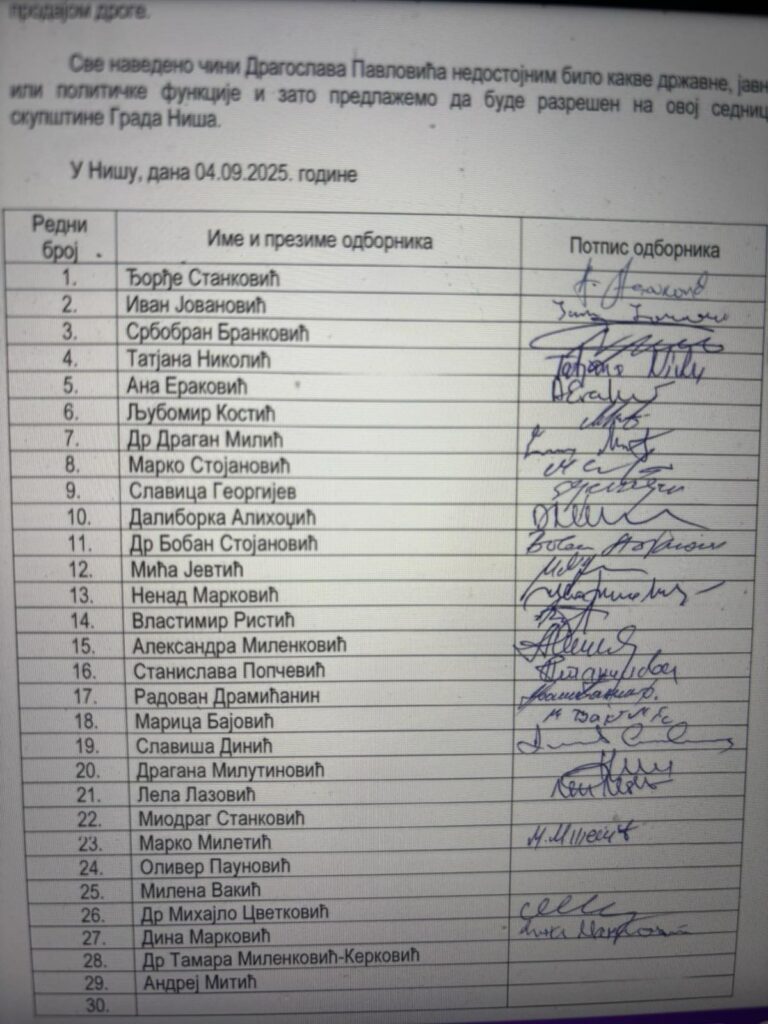 продајом дроге.
Све наведено чини Драгослава Павловића недостојним било какве државне, јавн
или политичке функције и зато предлажемо да буде разрешен на овој седниц
скупштине Града Ниша.
У Нишу, дана 04.09.2025. године
Редни број Име и презиме одборника Потпис одборника
1. Ђорђе Станковић
2. Иван Јовановић
3. Србобран Бранковић
4. Татјана Николић
5. Ана Ераковић
6. Љубомир Костић
7. Др Драган Милић
8. Марко Стојановић
9. Славица Георгијев
10. Далиборка Алихоџић
11. Др Бобан Стојановић
12. Мића Јевтић
13. Ненад Марковић
14. Властимир Ристић
15. Александра Миленковић
16. Станислава Попчевић
17. Радован Драмићанин
18. Марица Бајовић
19. Славиша Динић
20. Драгана Милутиновић
21. Лела Лазовић
22. Миодраг Станковић
23. Марко Милетић
24. Оливер Пауновић
25. Милена Вакић
26. Др Михајло Цветковић
27. Дина Марковић
28. Др Тамара Миленковић-Керковић
29. Андреј Митић
30.